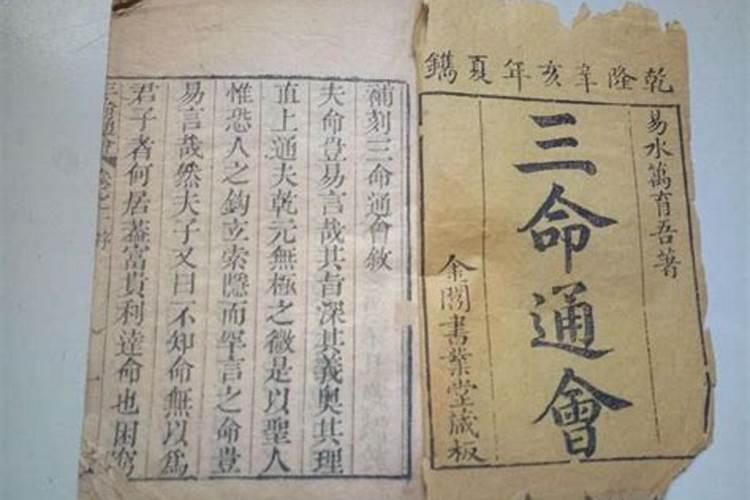 乾隆辛亥年夏鐫
易水萬育吾著
三命通會
金閶書業堂藏板
補刻三命通會敘
夫命豈易言哉其旨深其義奧其理
直上通夫乾元無極之微是以聖人
惟恐人之鈎玄索隱而罕言之命豈
易言哉然夫子又曰不知命無以為
君子者何居葢富貴利達命也困窮
三命通會
序